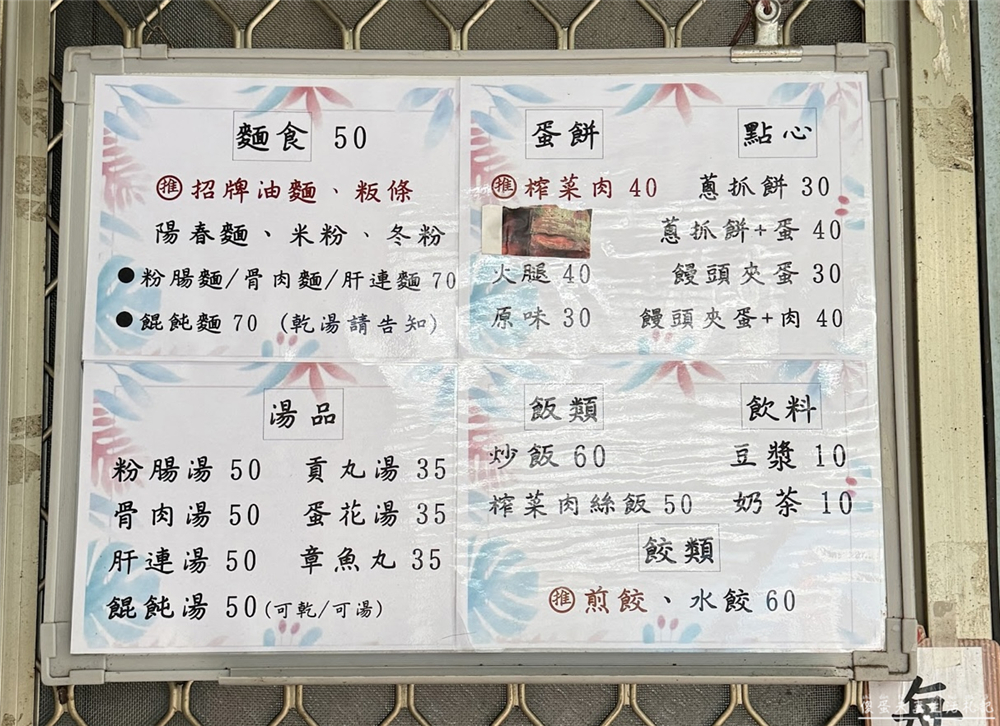 麵食 50
推 招牌油麵、粄條
陽春麵、米粉、冬粉
●粉腸麵/骨肉麵/肝連麵 70
●餛飩麵 70 (乾湯請告知)
蛋餅
推 榨菜肉 40
火腿 40
原味 30
點心
蔥抓餅 30
蔥抓餅+蛋 40
饅頭夾蛋 30
饅頭夾蛋+肉 40
湯品
粉腸湯 50 貢丸湯 35
骨肉湯 50 蛋花湯 35
肝連湯 50 章魚丸 35
餛飩湯 50(可乾/可湯)
飯類
炒飯 60
榨菜肉絲飯 50
飲料
豆漿 10
奶茶 10
餃類
推 煎餃、水餃 60
每